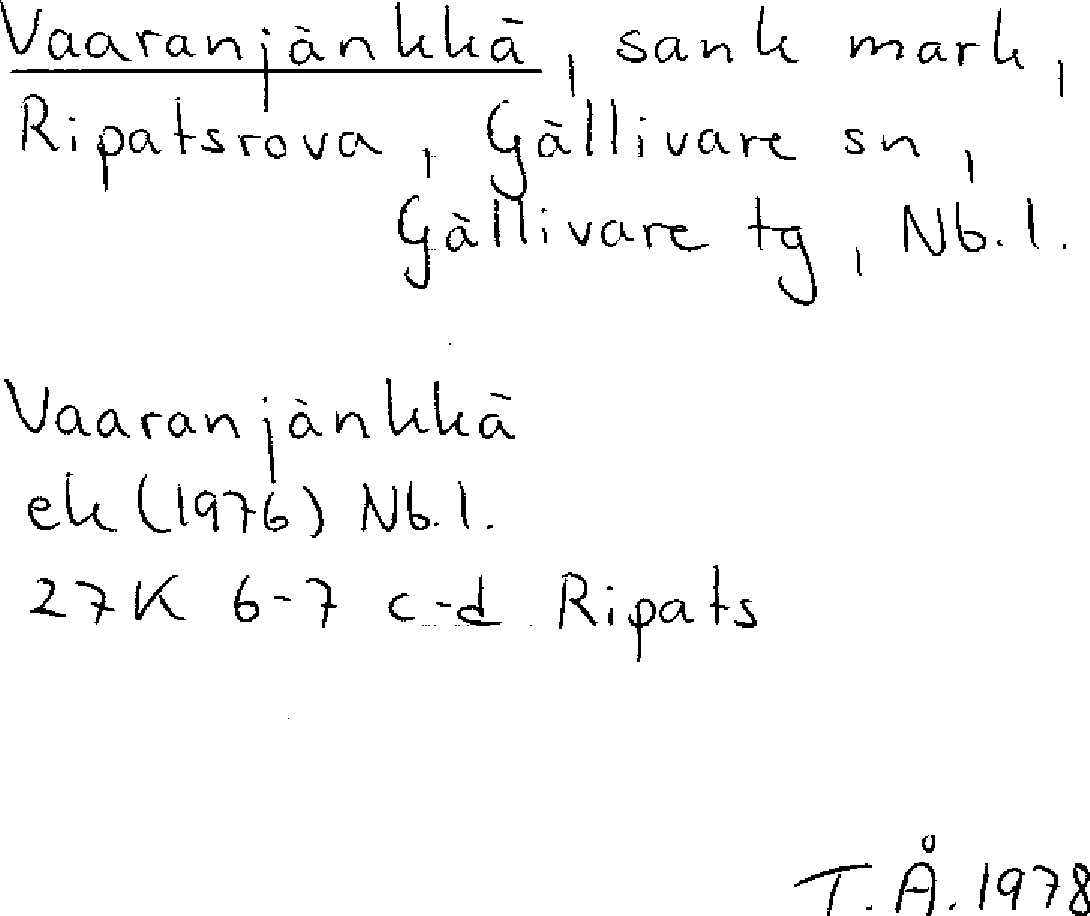 Vaaranjänkkä, sank mark,
Ripatsrova, Gällivare sn,
Gällivare tg, Nb.l.
Vaaranjänkkä
ek (1976) Nb.l.
27K 6-7 c-d Ripats
T.Å. 1978